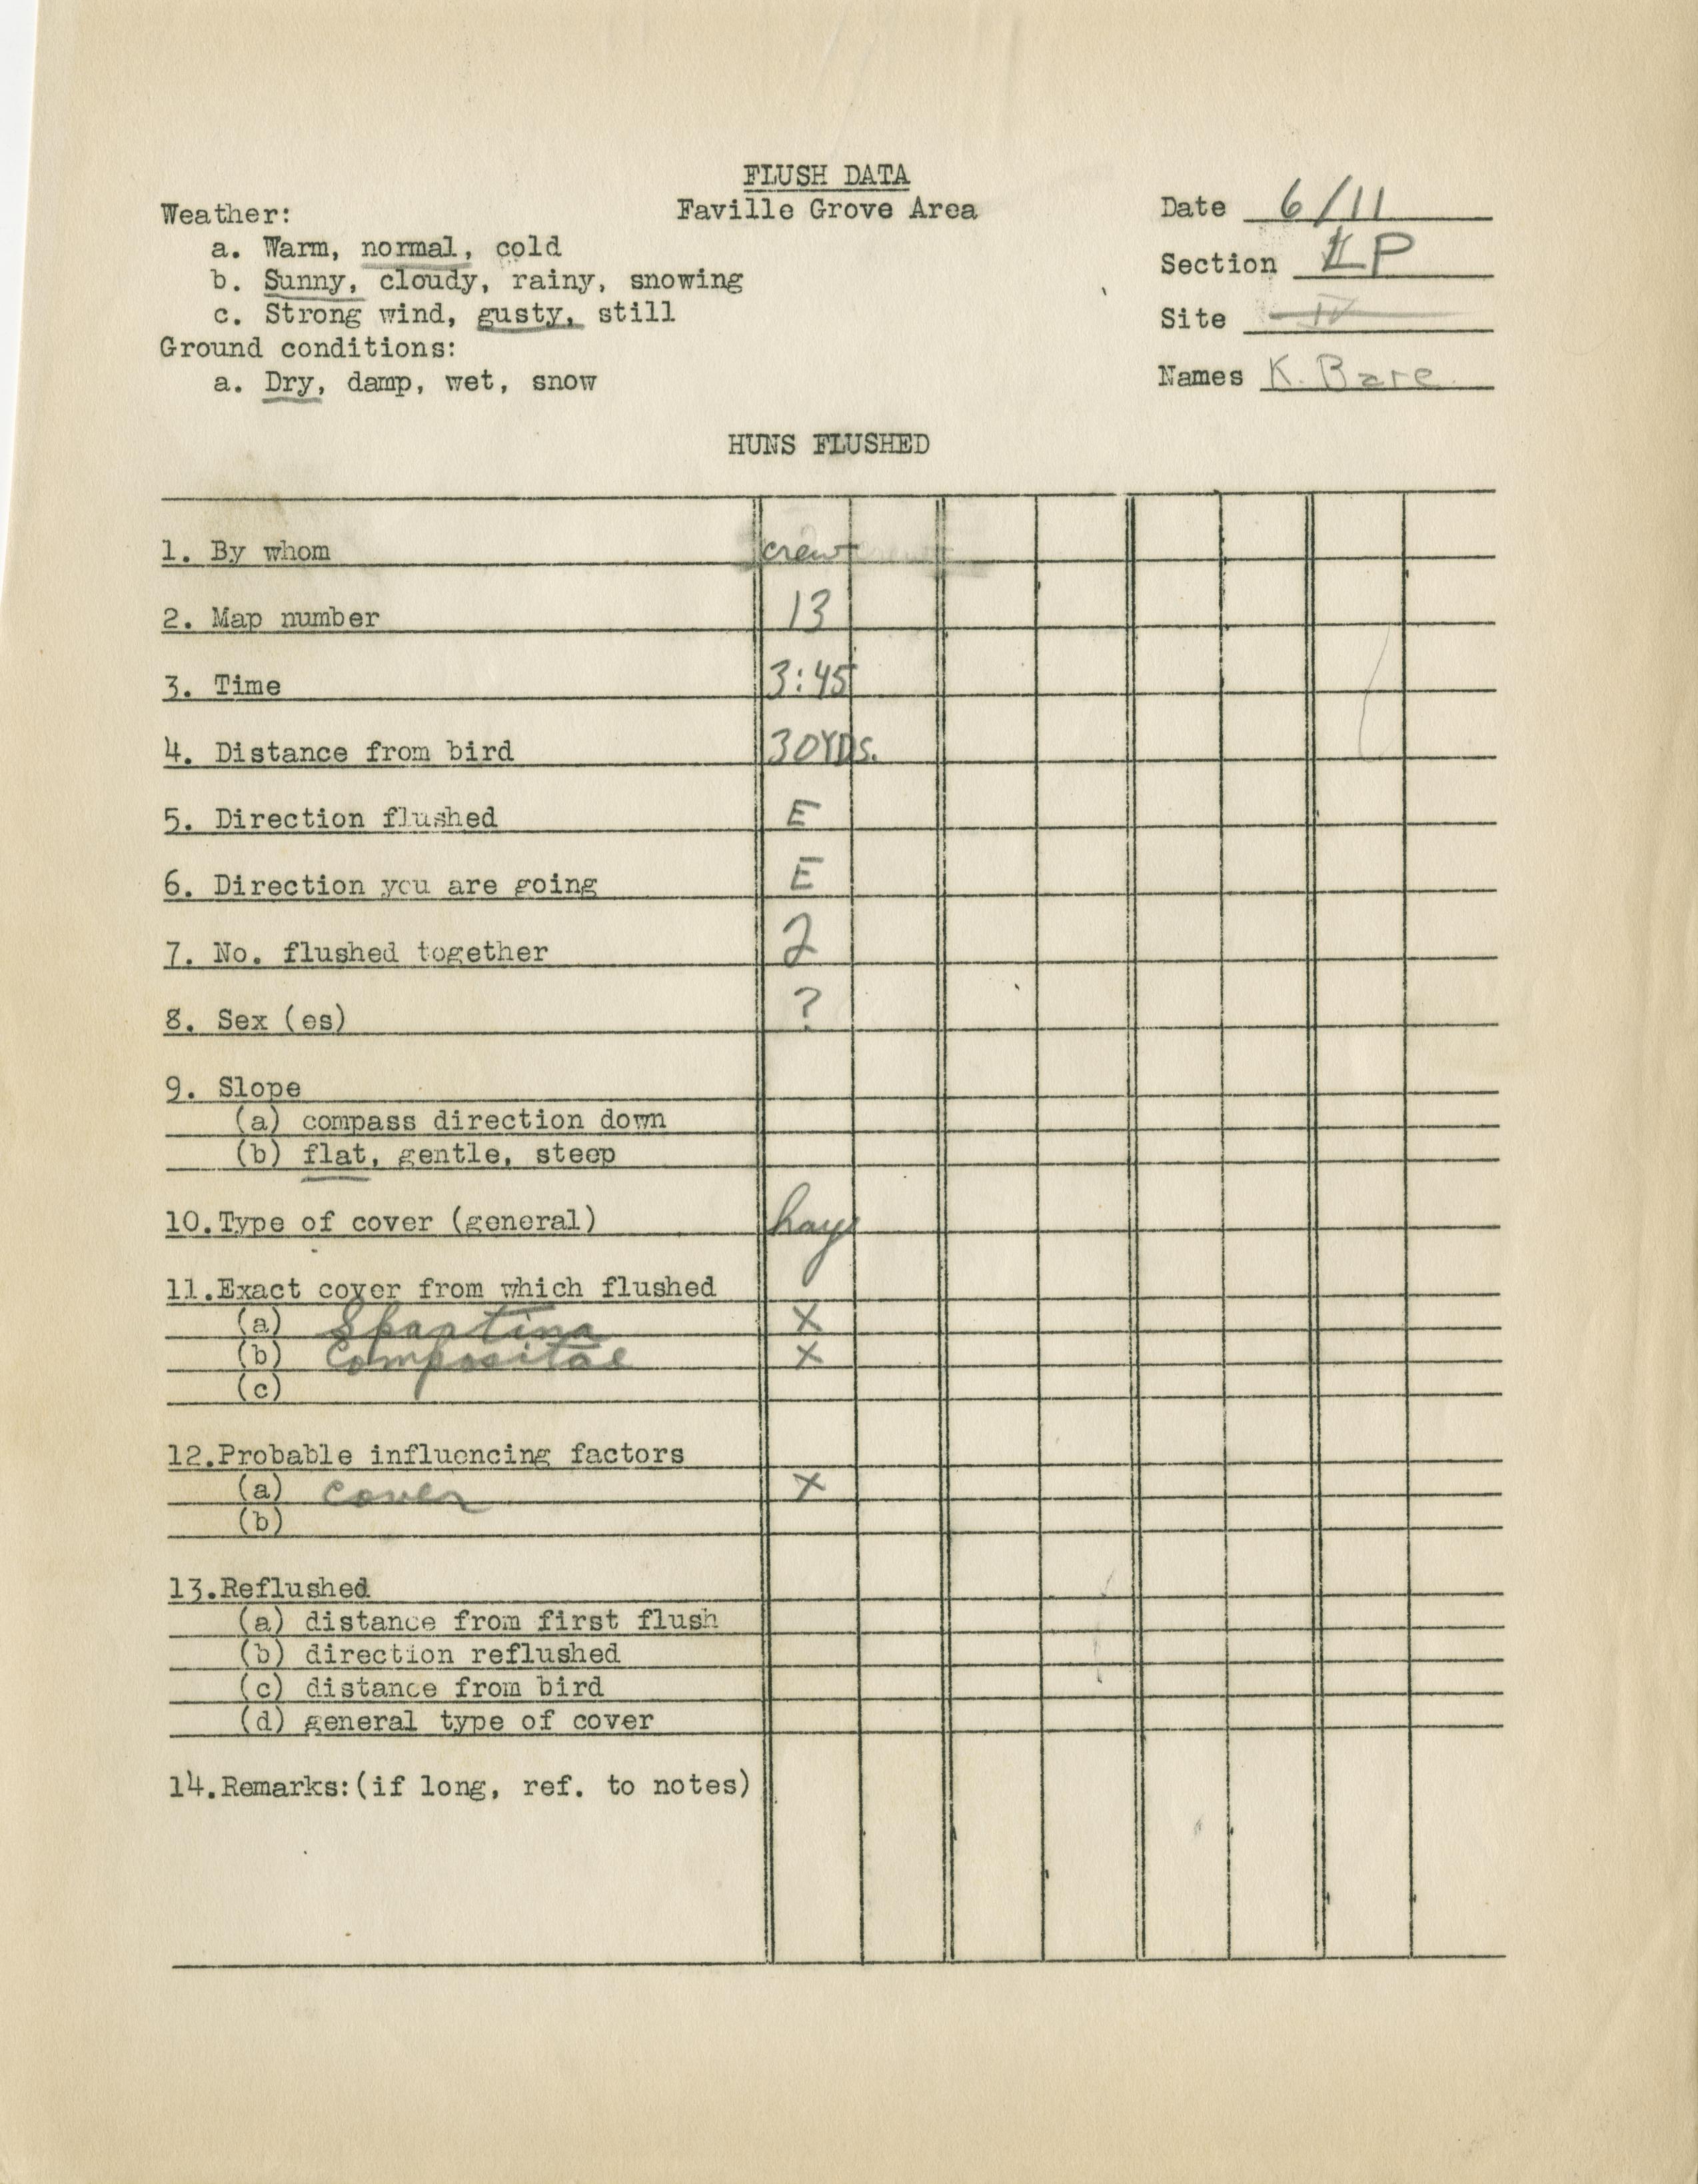 FLUSH DATA
Faville Grove Area
Weather:
a. Warm, normal, cold
b. Sunny, cloudy, rainy, snowing
c. Strong wind, gusty, still
Ground conditions:
a. Dry, damp, wet, snow
Date 6/11
Section LP
Site IV
Names K. Bare
HUNS FLUSHED
1. By whom crew
2. Map number 13
3. Time 3:45
4. Distance from bird 30YDS.
5. Direction flushed E
6. Direction you are going E
7. No. flushed together 2
8. Sex (es) ?
9. Slope
(a) compass direction down
(b) flat, gentle, steep
10.Type of cover (general) hay
11.Exact cover from which flushed
(a) Spartina X
(b) Compositae X
(c)
12.Probable influencing factors
(a) cover X
(b)
13.Reflushed
(a) distance from first flush
(b) direction reflushed
(c) distance from bird
(d) general type of cover
14.Remarks:(if long, ref. to notes)